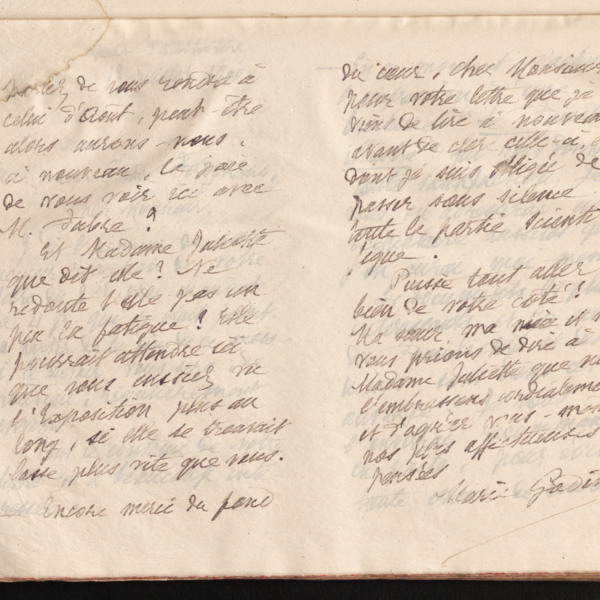 de vous rendre à
celui d'Août, peut-être
alors aurons-nous,
à nouveau, la joie
de vous voir ici avec
M. Fabre ?
Et Madame Juliette
que dit-elle ? Ne
redoute t-elle pas un
peu la fatigue ? Elle
pourrait attendre ici
que vous eussiez vu
l'Exposition plus au
long, si elle se trouvait
lasse plus vite que vous.
Encore merci du fond
du cœur, cher Monsieur
pour votre lettre que je
viens de lire à nouveau
avant de clore celle-ci,
dont je suis obligée de
passer sous silence
toute la partie scienti
fique.
Puisse tout aller
bien de votre côté !
Ma sœur, ma nièce et m
vous prions de dire à
Madame Juliette que no
l'embrassons cordialeme
et d'agréer vous-mê
nos plus affectueuses
pensées
Marie Godin